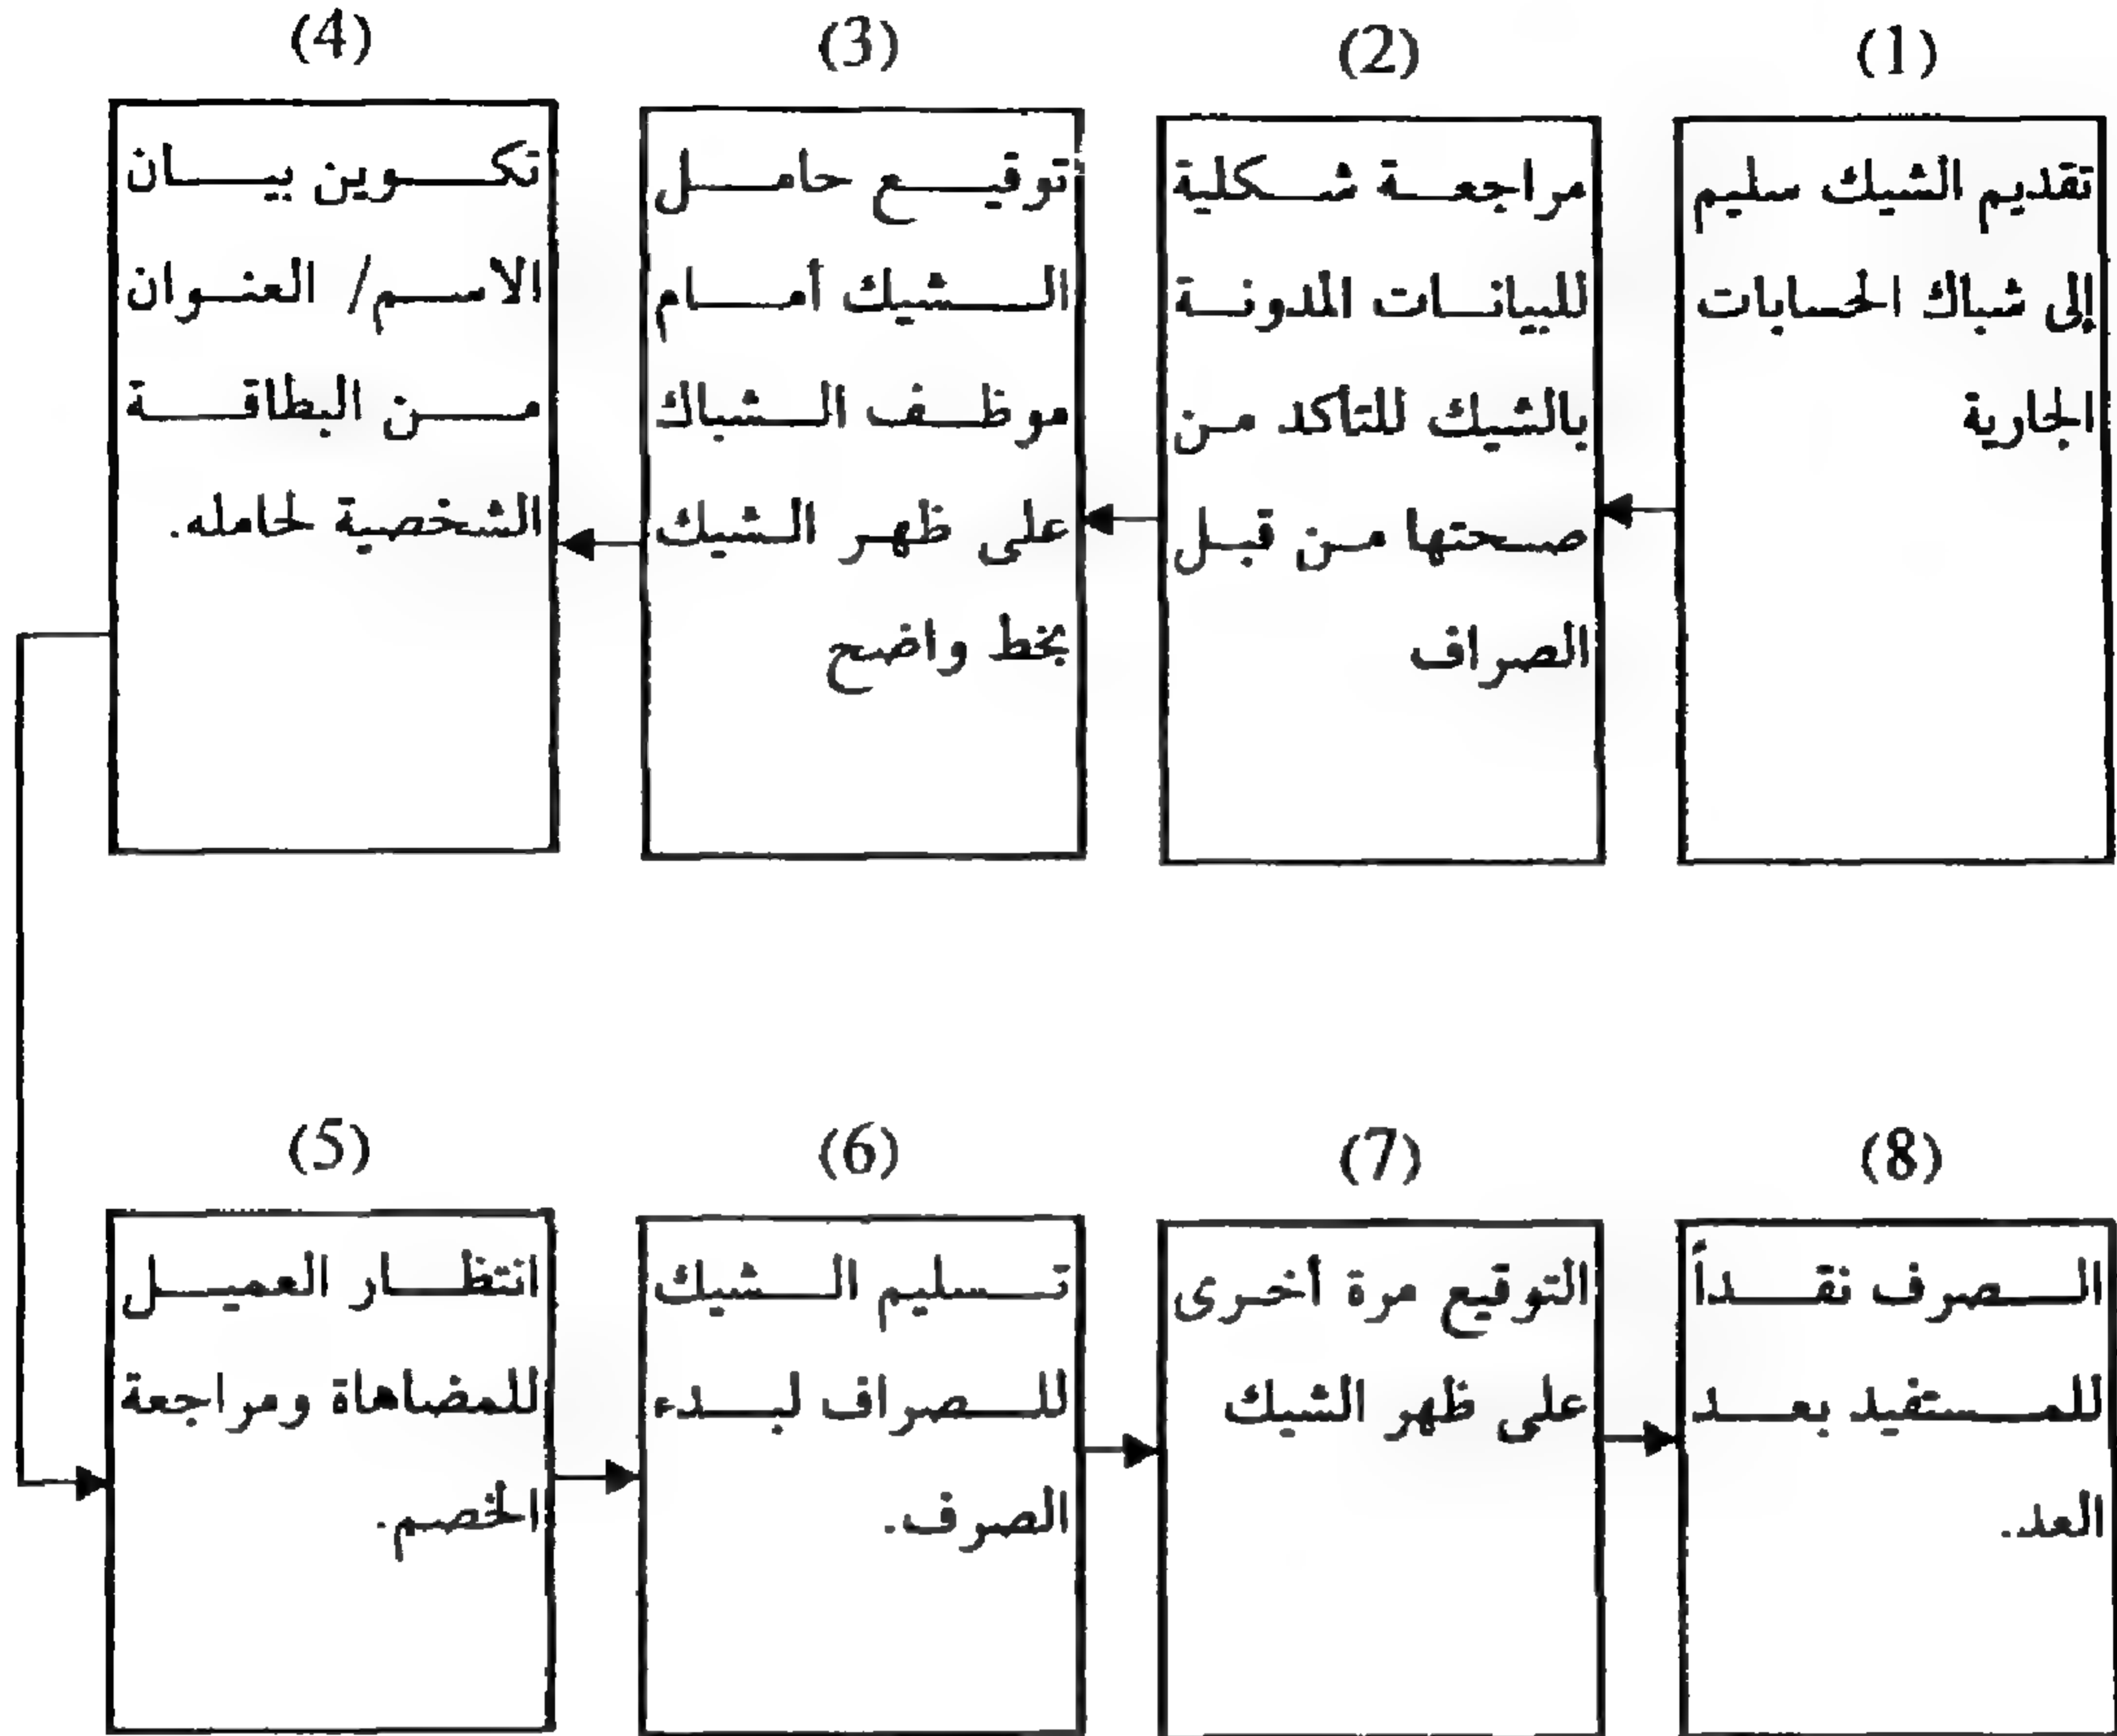 (1)
تقديم الشيك سليم
إلى شباك الحسابات
الجارية
(2)
مراجعة شكلية
للبيانات المدونة
بالشيك للتأكد من
صحتها من قبل
الصراف
(3)
توقيع حامل
الشيك أمام
موظف الشباك
على ظهر الشيك
بخط واضح
(4)
تكوين بيان
الاسم/ العنوان
من البطاقة
الشخصية لحامله.
(5)
انتظار العميل
للمضاهاة ومراجعة
الخصم.
(6)
تسليم الشيك
للصراف لبدء
الصرف.
(7)
التوقيع مرة أخرى
على ظهر الشيك
(8)
الصرف نقداً
للمستفيد بعد
العد.